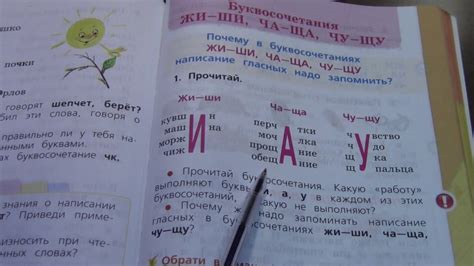 Буквосочетания
ЖИ—ШИ, ЧА—ЩА, ЧУ—ЩУ
Почему в буквосочетаниях
ЖИ—ШИ, ЧА—ЩА, ЧУ—ЩУ
написание гласных надо запомнить?
1. Прочитай.
Жи—ши Ча—ща Чу—щу
кувш н перч тки ч вство
маш на моч лка ч до
морж И прощ А ние щ У ка
чиж обещ ние щ пальца
• Прочитай буквосочетания. Какую «работу»
выполняют буквы и, а, у в каждом из этих
буквосочетаний, какую не выполняют?
• Почему надо запоминать написание
гласных в буквосочетаниях жи—ши, ча—ща,
чу—щу?
Обрати
почки
говорят шепчет, берёт?
эти слова, говоря о
правильно ли у тебя
буквами.
буквосочетание чк.
знания о написании
т? Приведи приме-
износить при чте-
нных словах?